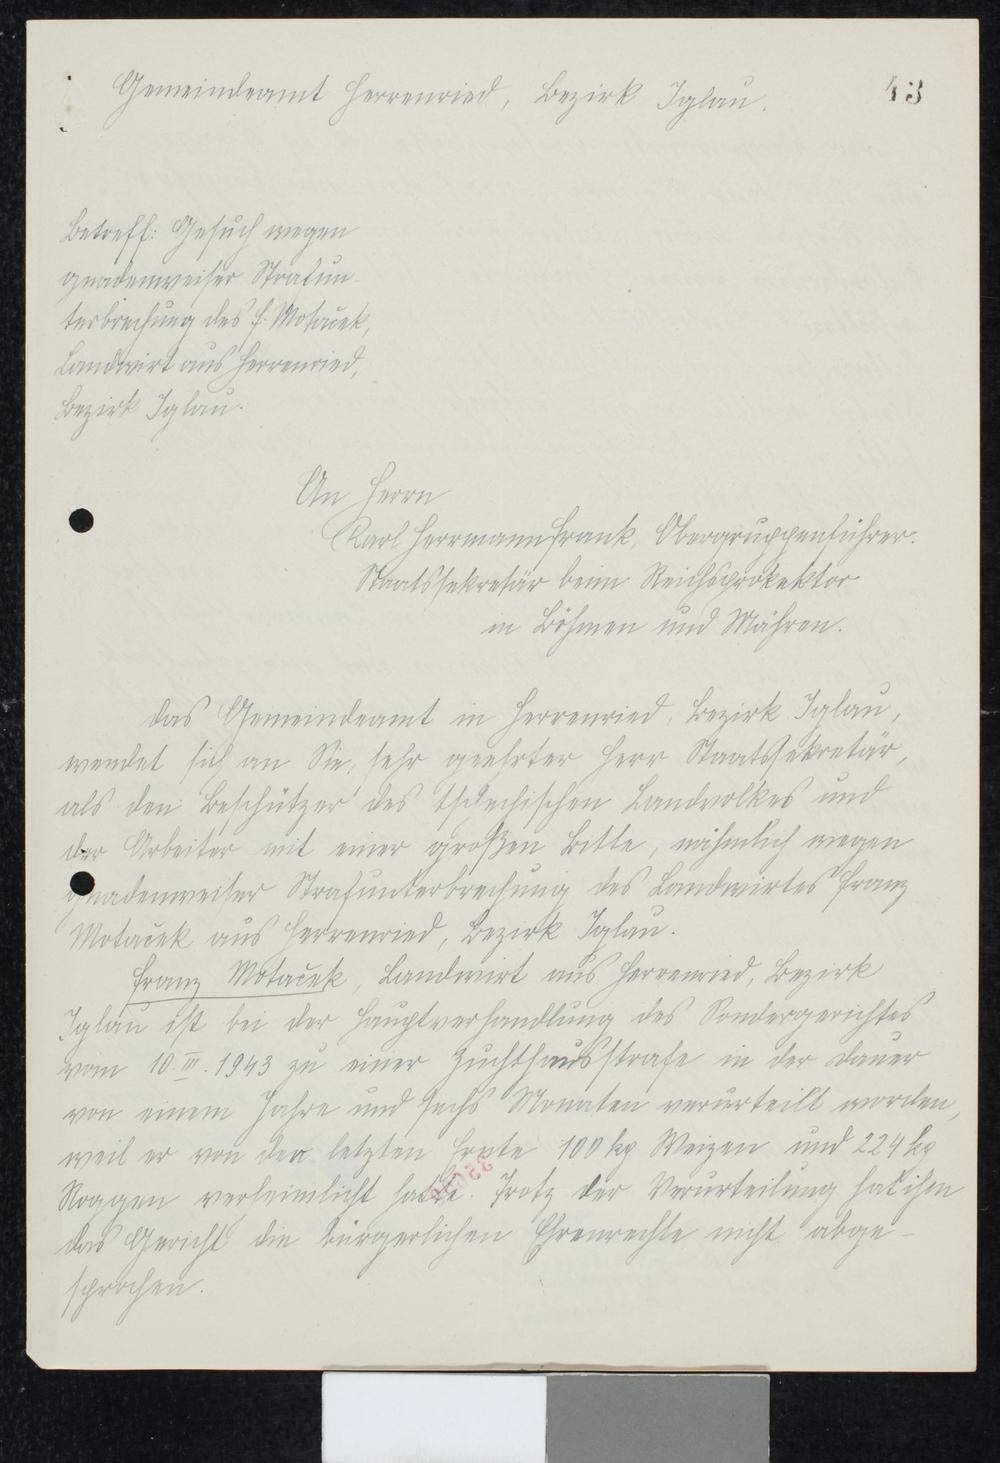 Gemeindeamt Herrenried, Bezirk Iglau.
43
Betreff: Gesuch wegen
gnadenweiser Strafun-
terbrechung des F. Motaček,
Landwirt aus Herrenried,
Bezirk Iglau.
An Herrn
Karl Herrmann Frank, Obergruppenführer.
Staatssekretär beim Reichsprotektor
in Böhmen und Mähren.
Das Gemeindeamt in Herrenried, Bezirk Iglau,
wendet sich an Sie, sehr geehrter Herr Staatssekretär,
als den Beschützer des tschechischen Landvolkes und
der Arbeiter mit einer großen Bitte, nähmlich wegen
gnadenweiser Strafunterbrechung des Landwirtes Franz
Motaček aus Herrenried, Bezirk Iglau.
Franz Motaček, Landwirt aus Herrenried, Bezirk
Iglau ist bei der Hauptverhandlung des Sondergerichtes
vom 10. III. 1943 zu einer Zuchthausstrafe in der Dauer
von einem Jahre und sechs Monaten verurteilt worden,
weil er von der letzten Ernte 100 kg Weizen und 224 kg
Roggen verheimlicht hatte. Trotz der Verurteilung hat ihm
das Gericht die bürgerlichen Ehrenrechte nicht abge-
sprochen.